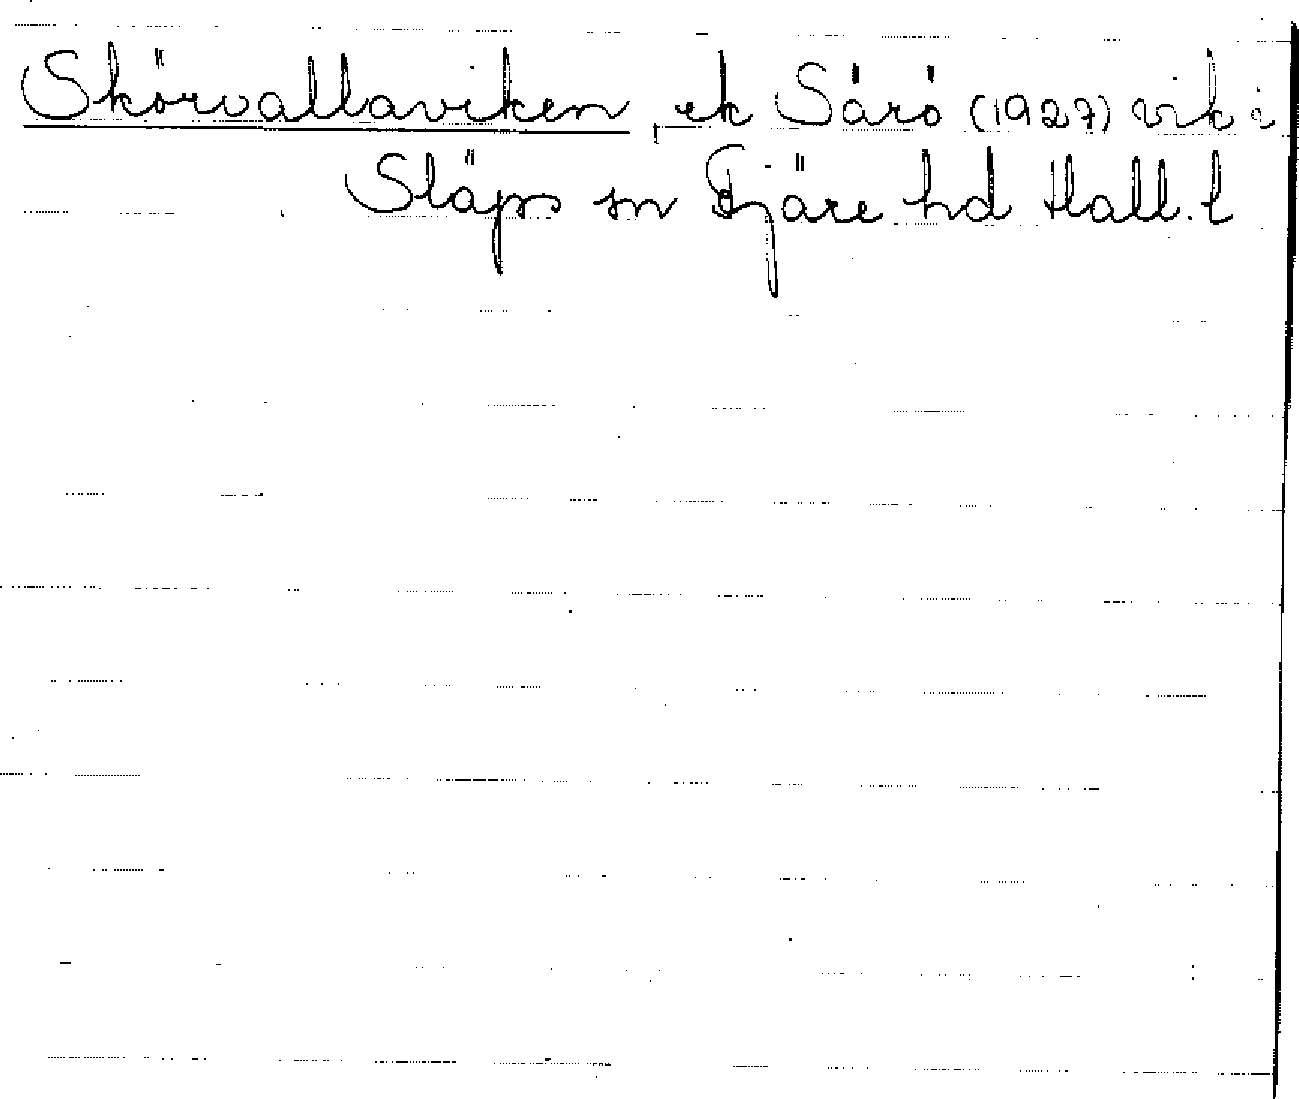 Skörvallaviken, ek Särö (1927) vik i
Släps sn Fjäre hd Hall. l